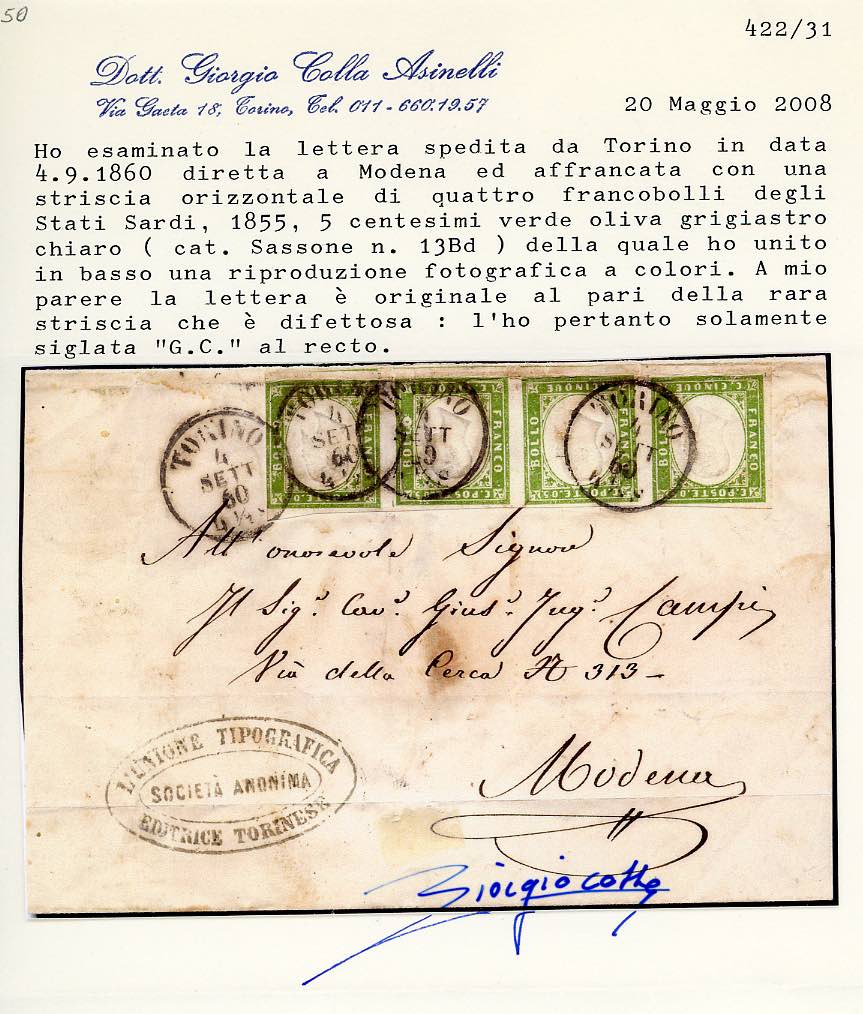 50
422/31
Dott. Giorgio Colla Asinelli
Via Gaeta 18, Torino, Tel. 011-660.19.57
20 Maggio 2008
Ho esaminato la lettera spedita da Torino in data
4.9.1860 diretta a Modena ed affrancata con una
striscia orizzontale di quattro francobolli degli
Stati Sardi, 1855, 5 centesimi verde oliva grigiastro
chiaro ( cat. Sassone n. 13Bd ) della quale ho unito
in basso una riproduzione fotografica a colori. A mio
parere la lettera è originale al pari della rara
striscia che è difettosa : l'ho pertanto solamente
siglata "G.C." al recto.
TORINO
4
SETT
60
TORINO
4
SETT
60
TORINO
4
SETT
60
TORINO
4
SETT
60
BOLLO FRANCO
BOLLO C. CINQUE FRANCO C. POSTE. O5
BOLLO C. CINQUE FRANCO C. POSTE. O5
BOLLO C. CINQUE FRANCO C. POSTE. O5
All'onorevole Signore
Il Sigr. Cavr. Giusr. Ingr. Campi
Via della Cerca N 313-
Modena
L'UNIONE TIPOGRAFICA
SOCIETÀ ANONIMA
EDITRICE TORINESE
Giorgio Colla